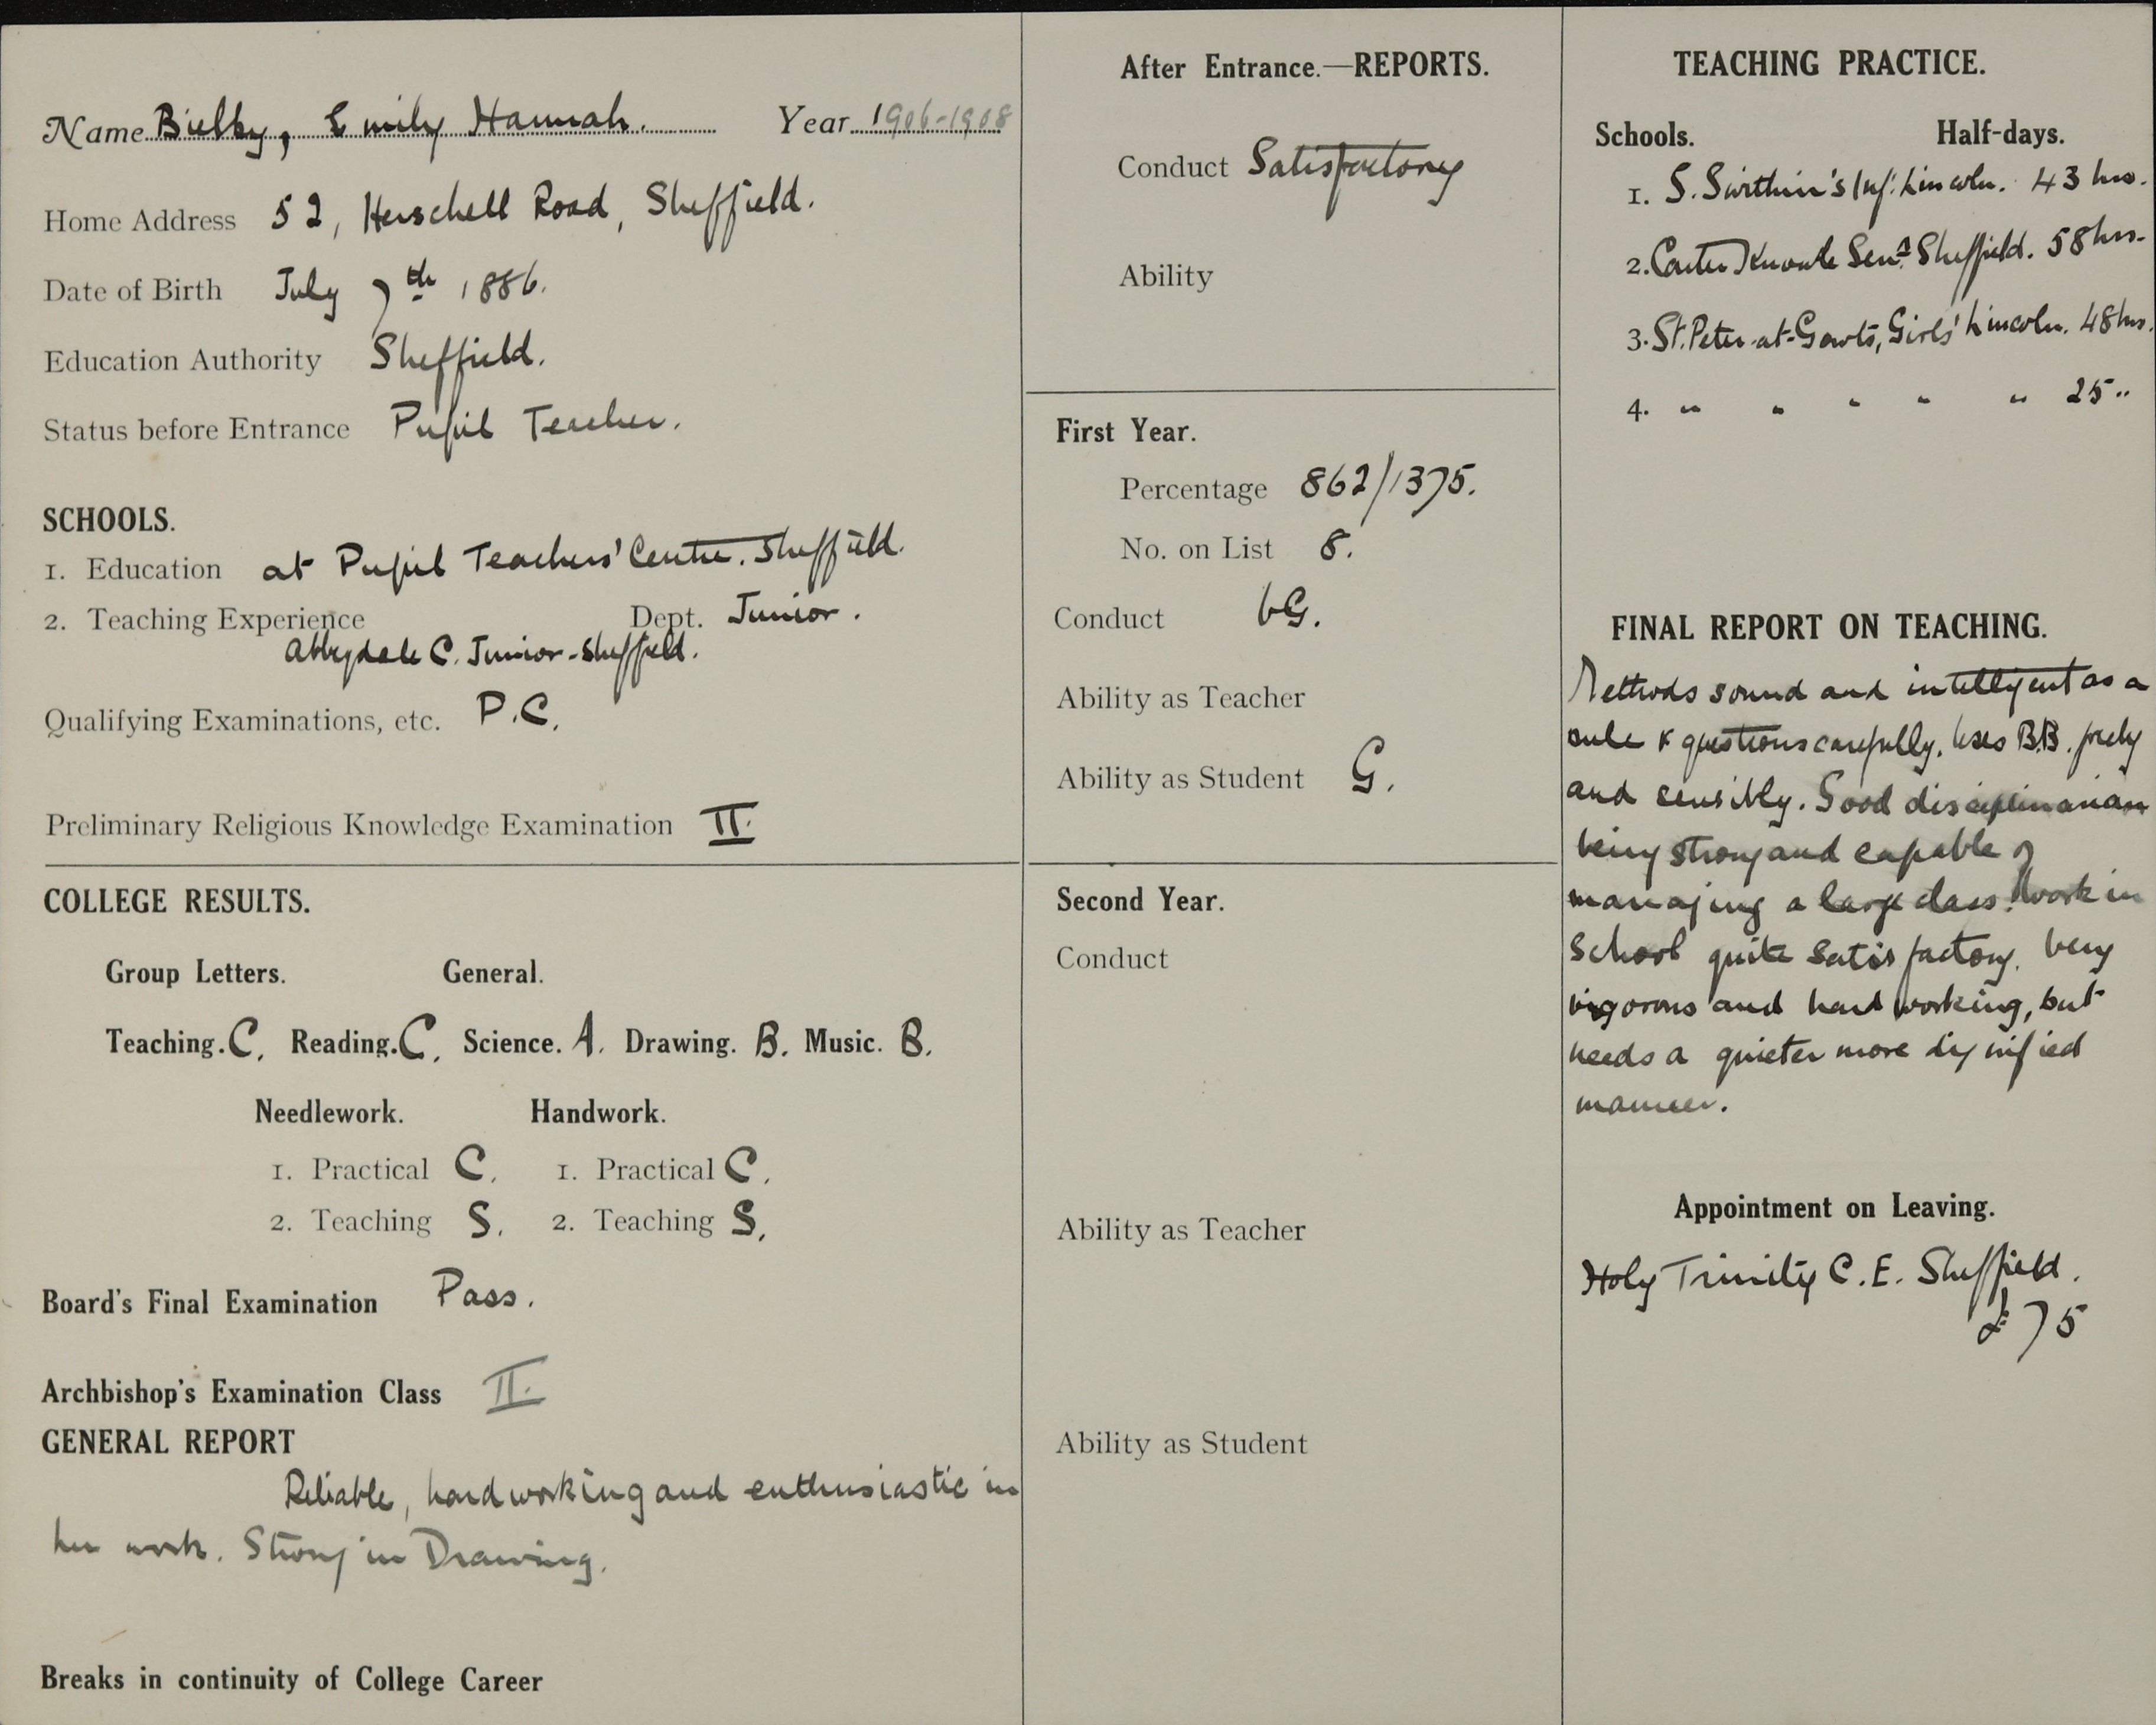 Name Bielby, Emily Hannah. Year 1906-1908
Home Address 52, Herschell Road, Sheffield.
Date of Birth July 7th 1886.
Education Authority Sheffield.
Status before Entrance Pupil Teacher.
SCHOOLS.
1. Education at Pupil Teachers' Centre. Sheffield.
2. Teaching Experience Dept. Junior.
Abbeydale C. Junior - Sheffield.
Qualifying Examinations, etc. P.C.
Preliminary Religious Knowledge Examination II.
COLLEGE RESULTS.
Group Letters. General.
Teaching. C. Reading. C. Science. A. Drawing. B. Music. B.
Needlework. Handwork.
1. Practical C. 1. Practical C.
2. Teaching S. 2. Teaching S.
Board's Final Examination Pass.
Archbishop's Examination Class II.
GENERAL REPORT
Reliable, hardworking and enthusiastic in
her work. Strong in Drawing.
Breaks in continuity of College Career
After Entrance.—REPORTS.
Conduct Satisfactory
Ability
First Year.
Percentage 862/1375.
No. on List 8.
Conduct VG.
Ability as Teacher
Ability as Student G.
Second Year.
Conduct
Ability as Teacher
Ability as Student
TEACHING PRACTICE.
Schools. Half-days.
1. S. Swithin's Inf. Lincoln. 43 hrs.
2. Carter Knowle Senr. Sheffield. 58 hrs.
3. St. Peter-at-Gowts, Girls' Lincoln. 48 hrs.
4. " " " " " 25 "
FINAL REPORT ON TEACHING.
Methods sound and intelligent as a
rule & questions carefully. Uses B.B. freely
and sensibly. Good disciplinarian
being strong and capable of
managing a large class. Work in
School quite satisfactory. Very
vigorous and hard working, but
needs a quieter more dignified
manner.
Appointment on Leaving.
Holy Trinity C.E. Sheffield.
£75